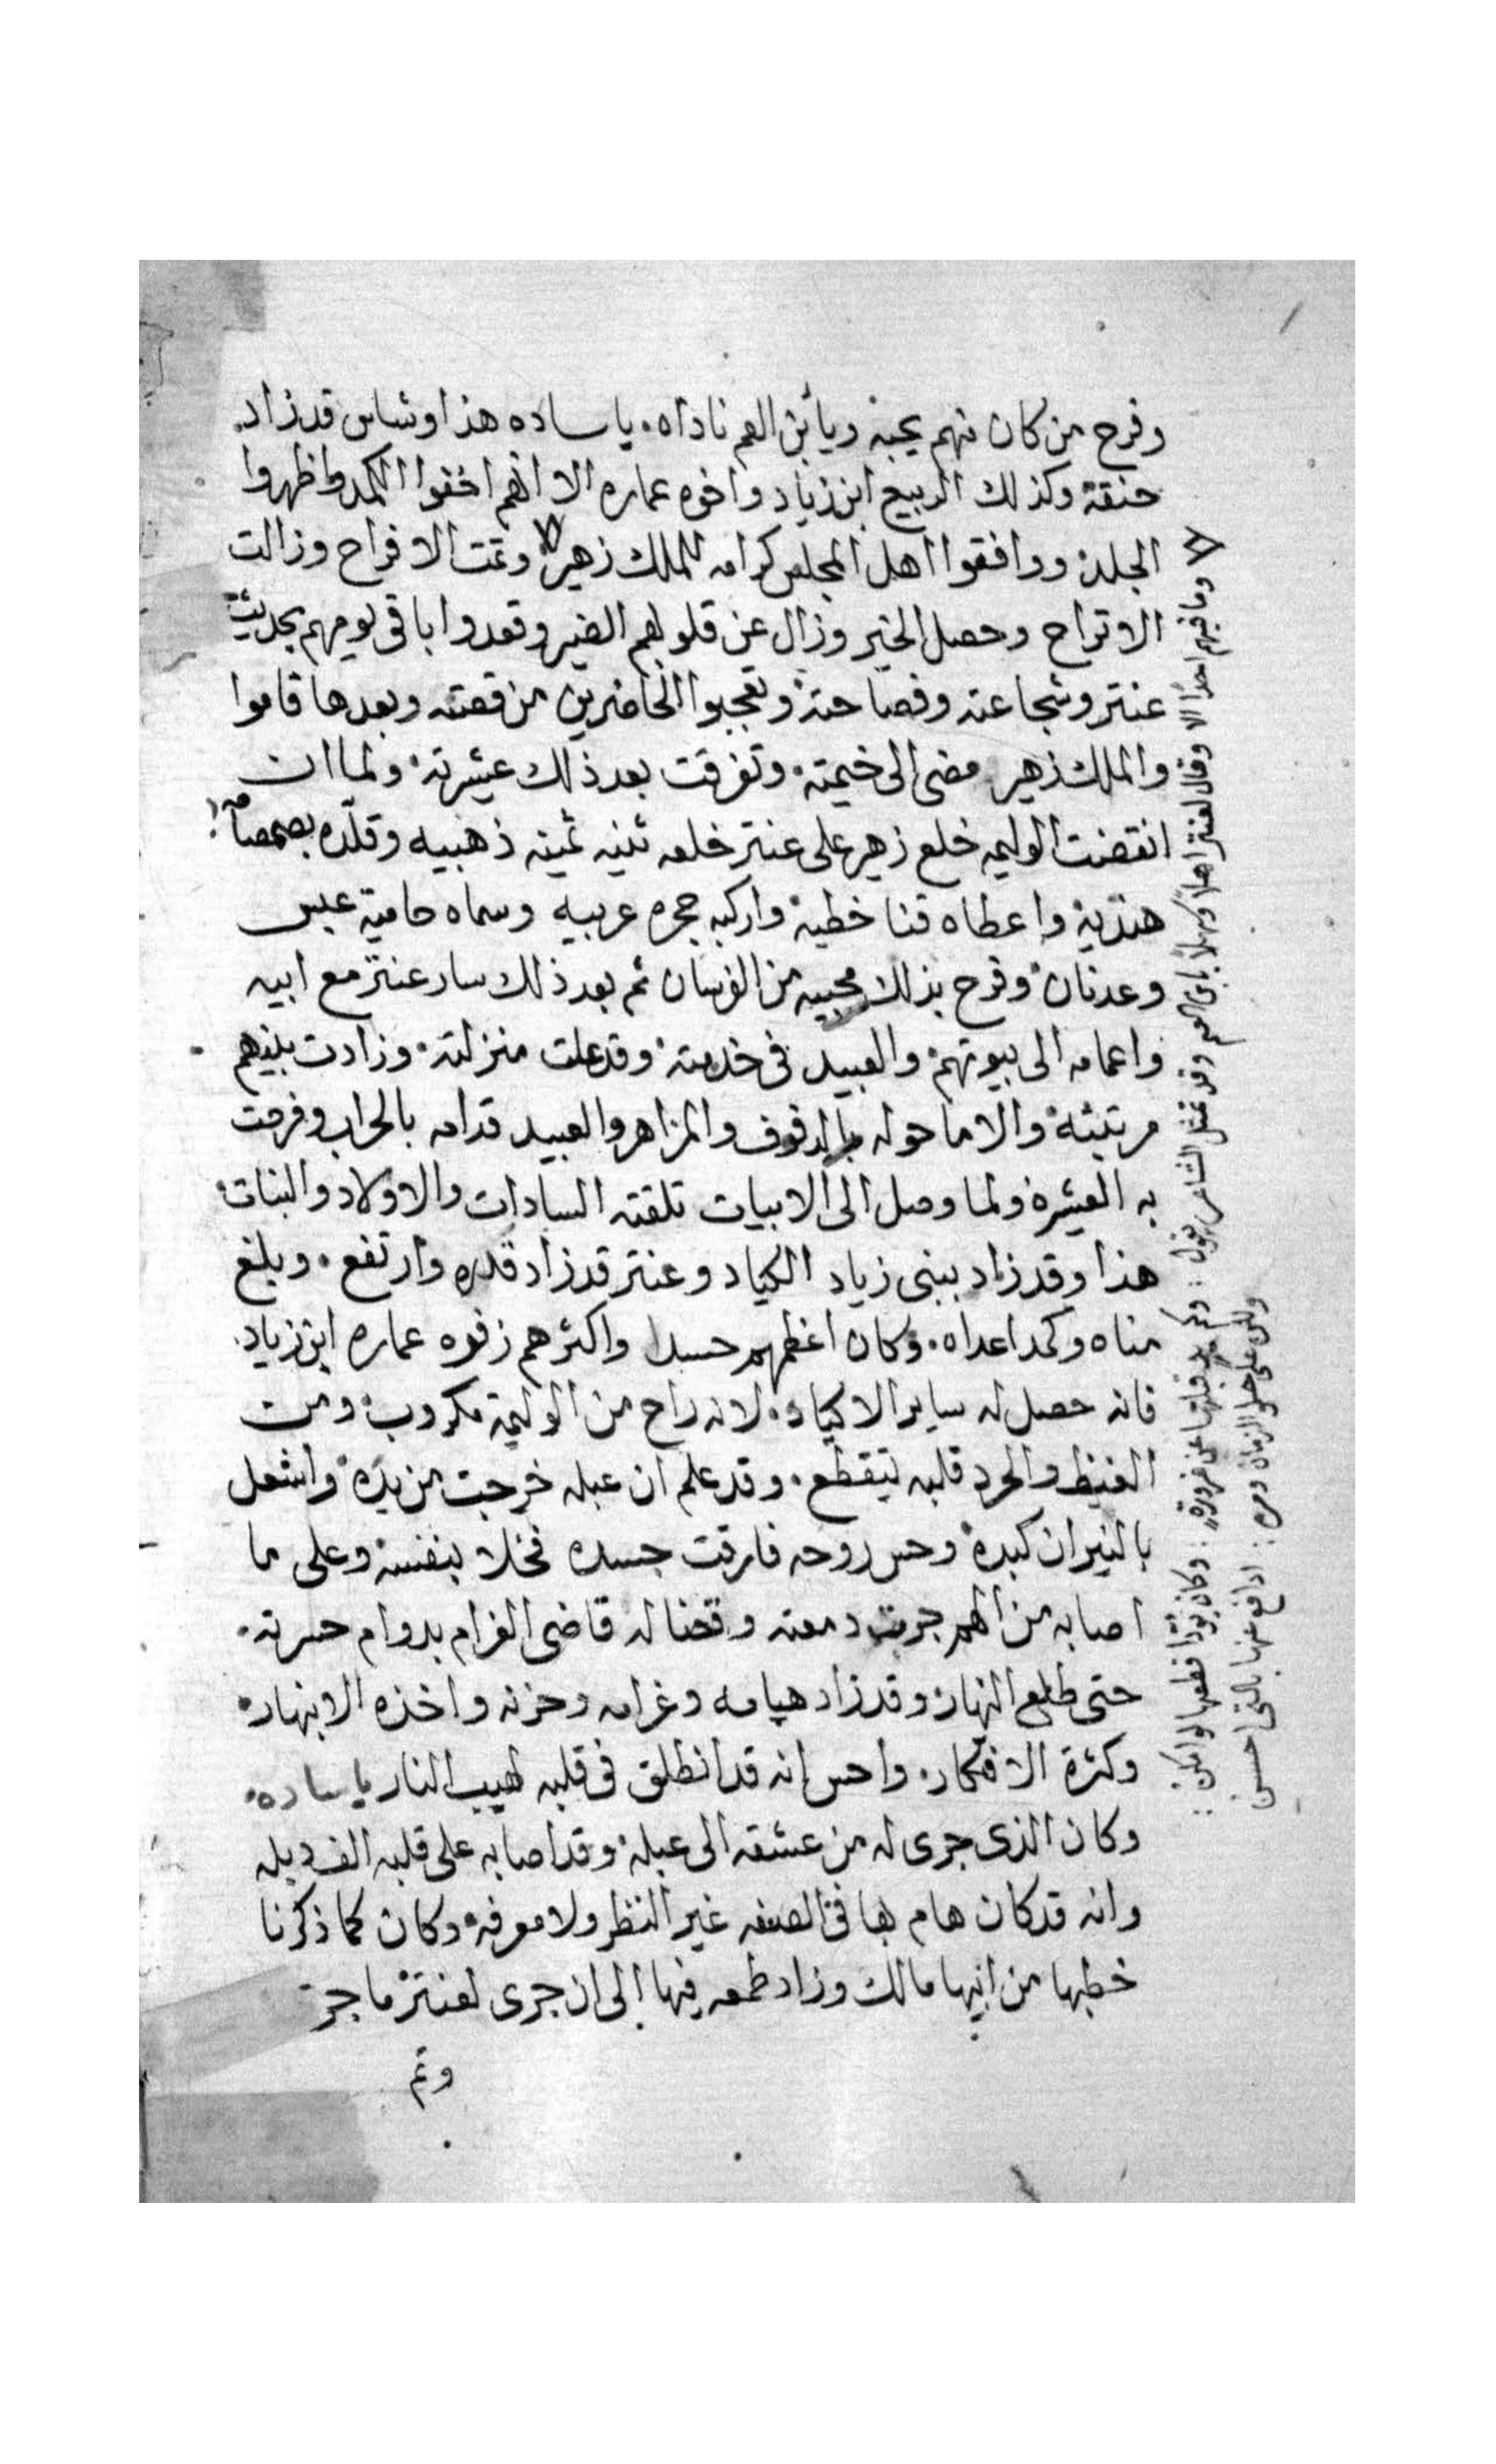 وفرح من كان منهم يحبه ويابن العم ناداه. يا ساده هذا وشاس قد زاد
حنقه وكذلك الربيع ابن زياد واخوه عماره الا انهم اخفوا الكمد واظهروا
الجلد ووافقوا اهل المجلس كرامه للملك زهير وتمت الافراح وزالت
الاتراح وحصل الخير وزال عن قلوبهم الضير وقعدوا باقي يومهم بحديث
عنتر وشجاعته وفصاحته وتعجبوا الحاضرين من قصته وبعدها قاموا
والملك زهير مضى الى خيمته. وتفرقت بعد ذلك عشيرته. ولما ان
انقضت الوليمه خلع زهير على عنتر خلعه ثمينه ذهبيه وقلده بصمصامه
هنديه واعطاه قنا خطيه واركبه حجره عربيه وسماه حامية عبس
وعدنان وفرح بذلك محبيه من الفرسان ثم بعد ذلك سار عنتر مع ابيه
واعمامه الى بيوتهم والعبيد في خدمته وقد علت منزلته. وزادت بينهم
مرتبته والاما حوله بالدفوف والمزاهر والعبيد قدامه بالحراب وفرحت
به العشيره ولما وصل الى الابيات تلقته السادات والاولاد والبنات
هذا وقد زاد ببني زياد الكياد وعنتر قد زاد قدره وارتفع. وبلغ
مناه وكمد اعداه. وكان اعظمهم حسدا واكثرهم زفوه عماره ابن زياد.
فانه حصل له ساير الاكياد. لانه راح من الوليمة مكروب ومن
الغيظ والحرد قلبه يتقطع. وقد علم ان عبله خرجت من يده واشعل
بالنيران كبده وحس روحه فارقت جسده فخلا بنفسه وعلى ما
اصابه من الهم جرت دمعته وقضا له قاضي الغرام بدوام حسرته.
حتى طلع النهار وقد زاد هيامه وغرامه وحزنه واخذه الانبهار.
وكثرة الافكار. واحس انه قد انطلق في قلبه لهيب النار يا ساده.
وكان الذي جرى له من عشقه الى عبله وقد اصابه على قلبه الف دبله
وانه قد كان هام بها في الصفه غير النظر ولا معرفه وكان كما ذكرنا
خطبها من ابيها مالك وزاد طمعه فيها الى ان جرى لعنتر ما جر
وتم
وما فيهم احدًا الا وقال لعنتر اهلا وسهلا بابن العم وقد تمثل الشاعر يقول :